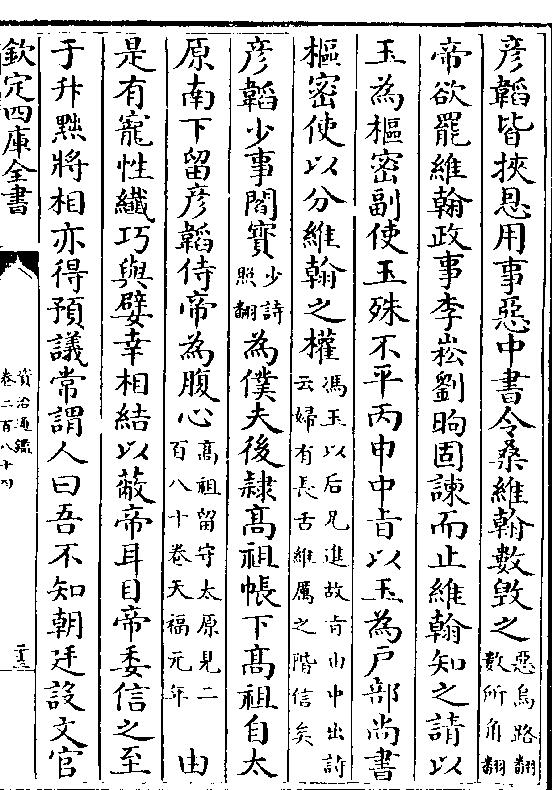 彦韜皆挾恩用事惡中書令桑維翰數毁之惡烏路翻數所角翻
帝欲罷維翰政事李崧劉昫固諫而止維翰知之請以
玉為樞密副使玉殊不平丙申中㫖以玉為户部尚書
樞密使以分維翰之權馮玉以后兄進故㫖由中出詩云婦有長舌維厲之階信矣
彦韜少事閻寳少詩照翻為僕夫後隷髙祖帳下髙祖自太
原南下留彦韜侍帝為腹心髙祖留守太原見二百八十卷天福元年由
是有寵性纎巧與嬖幸相結以蔽帝耳目帝委信之至
于升黜將相亦得預議常謂人曰吾不知朝廷設文官
欽定四庫全書
資治通鑑
卷二百八十四